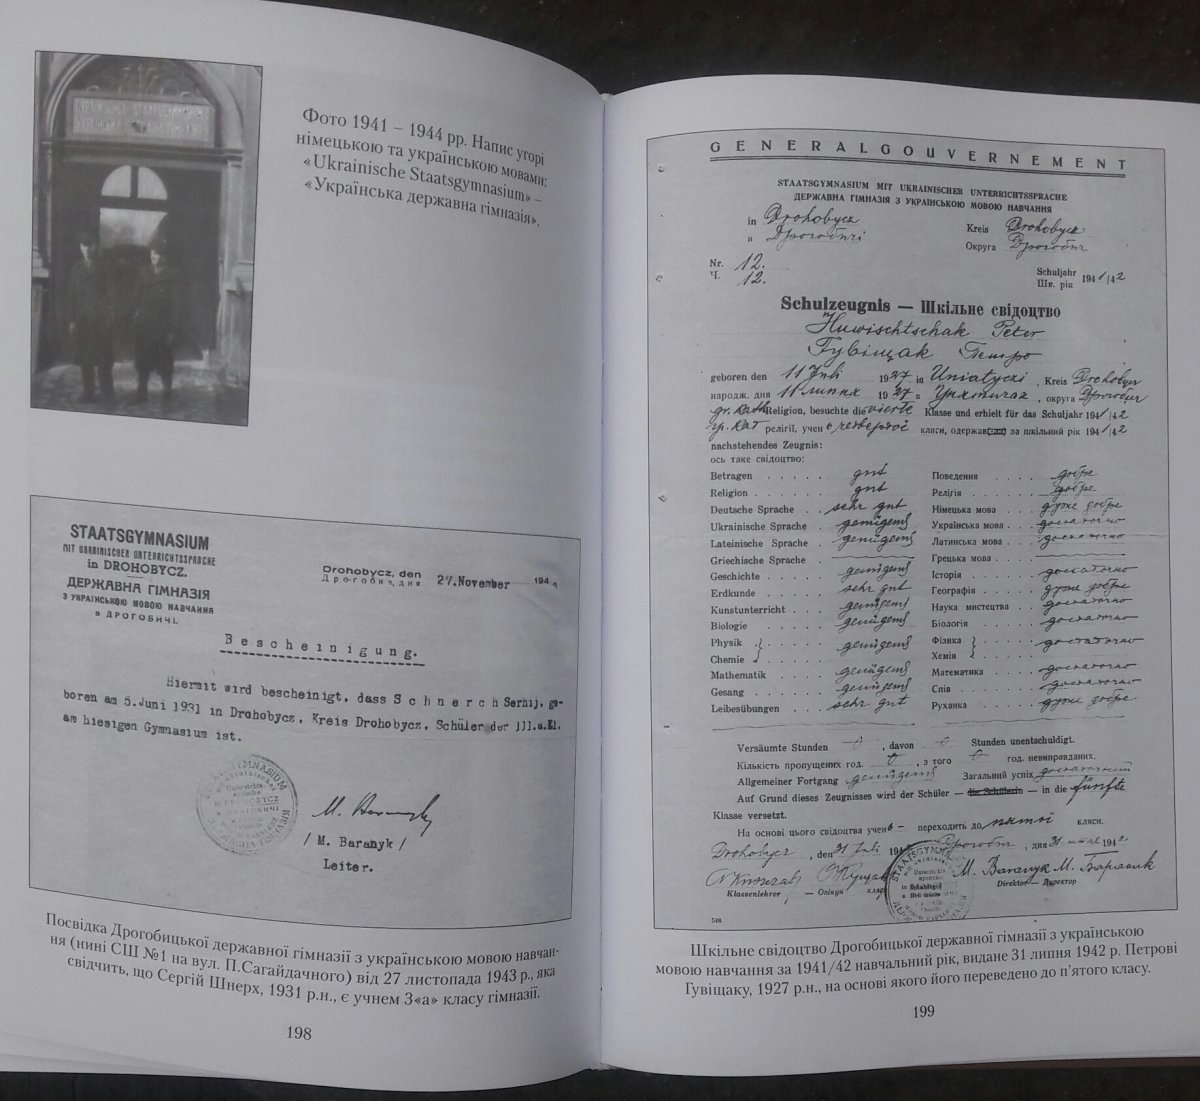 Фото 1941 – 1944 рр. Напис угорі
німецькою та українською мовами:
«Ukrainische Staatsgymnasium» –
«Українська державна гімназія».
STAATSGYMNASIUM
MIT UKRAINISCHER UNTERRICHTSSPRACHE
in DROHOBYCZ.
ДЕРЖАВНА ГІМНАЗІЯ
З УКРАЇНСЬКОЮ МОВОЮ НАВЧАННЯ
в ДРОГОБИЧІ.
Drohobycz, den
Дрогобич, дня
27.November 194
Bescheinigung.
Hiermit wird bescheinigt, dass Schnerch Serhij, ge-
boren am 5.Juni 1931 in Drohobycz, Kreis Drohobycz, Schüler der III.a.Kl.
am hiesigen Gymnasium ist.
/ M. Baranyk /
Leiter.
Посвідка Дрогобицької державної гімназії з українською мовою навчан-
ня (нині СШ №1 на вул. П.Сагайдачного) від 27 листопада 1943 р., яка
свідчить, що Сергій Шнерх, 1931 р.н., є учнем 3«а» класу гімназії.
198
GENERALGOUVERNEMENT
STAATSGYMNASIUM MIT UKRAINISCHER UNTERRICHTSSPRACHE
ДЕРЖАВНА ГІМНАЗІЯ З УКРАЇНСЬКОЮ МОВОЮ НАВЧАННЯ
in Drohobycz Kreis Drohobycz
в Дрогобичі Округа Дрогобич
Nr. 12. Schuljahr 1941/42
Ч. 12. Шк. рік
Schulzeugnis — Шкільне свідоцтво
Huwischtschak Peter
Гувіщак Петро
geboren den 11 Juli 1927 in Uniatyczi, Kreis Drohobycz
народж. дня 11 липня 1927 в Унятичах, округа Дрогобич
gr. kath Religion, besuchte die vierte Klasse und erhielt für das Schuljahr 1941/42
гр. кат релігії, учен ь четвертої кляси, одержав за шкільний рік 1941/42
nachstehendes Zeugnis:
ось таке свідоцтво:
Betragen gut Поведення добре
Religion gut Релігія добре
Deutsche Sprache sehr gut Німецька мова дуже добре
Ukrainische Sprache genügend Українська мова достаточно
Lateinische Sprache genügend Латинська мова достаточно
Griechische Sprache Грецька мова
Geschichte genügend Історія достаточно
Erdkunde sehr gut Географія дуже добре
Kunstunterricht genügend Наука мистецтва достаточно
Biologie genügend Біологія достаточно
Physik } genügend Фізика } достаточно
Chemie Хемія
Mathematik genügend Математика достаточно
Gesang genügend Спів достаточно
Leibesübungen sehr gut Руханка дуже добре
Versäumte Stunden 0, davon 0 Stunden unentschuldigt.
Кількість пропущених год. 0, з того 0 год. невиправданих.
Allgemeiner Fortgang genügend Загальний успіх достаточний
Auf Grund dieses Zeugnisses wird der Schüler — die Schülerin — in die fünfte
Klasse versetzt.
На основі цього свідоцтва учень – переходить до пятої кляси.
Drohobycz, den 31 Juli 194 Дрогобич, дня 31 липня 1942
M. Baranyk М. Бараник
Klassenlehrer — Опікун кляси Direktor — Директор
548
Шкільне свідоцтво Дрогобицької державної гімназії з українською
мовою навчання за 1941/42 навчальний рік, видане 31 липня 1942 р. Петрові
Гувіщаку, 1927 р.н., на основі якого його переведено до п'ятого класу.
199